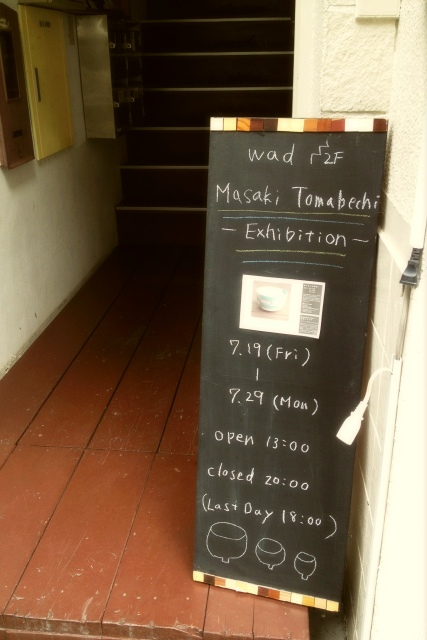 wad 2F
Masaki Tomabechi
- Exhibition -
7.19 (Fri)
|
7.29 (Mon)
open 13:00
closed 20:00
(Last Day 18:00)